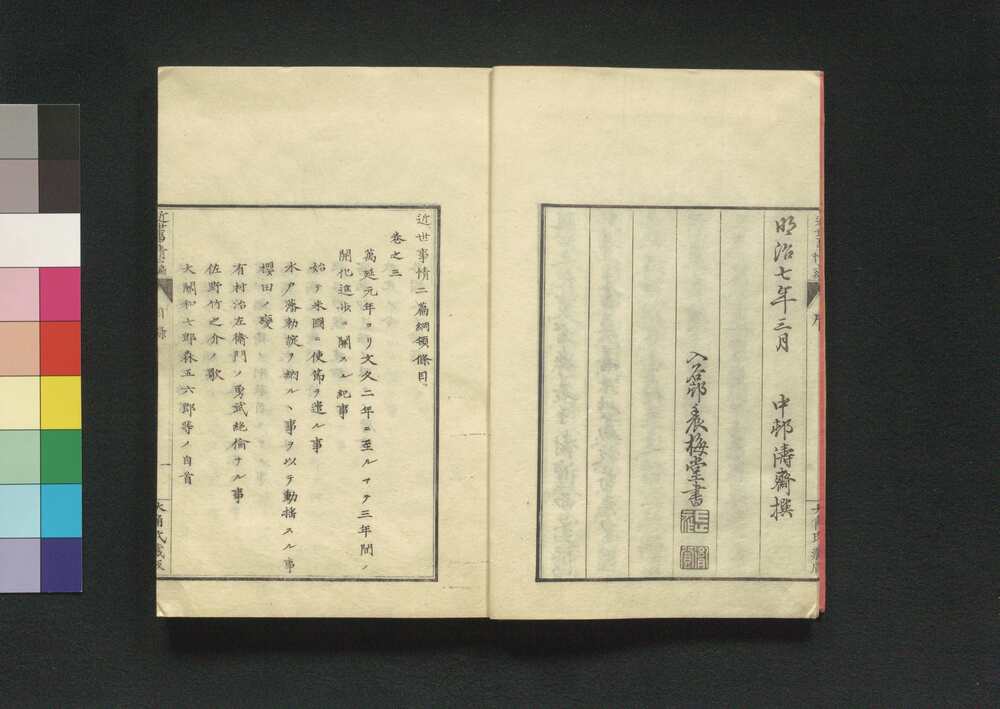 明治七年三月 中邨濤齋撰
養梅堂書
近世事情二篇綱領條目
巻之三
萬延元年ヨリ文久二年ニ至ルマテ三年間ノ
開化進歩ニ關スル紀事
始テ米國ニ使節ヲ遣ル事
水戸藩勅諚ヲ納ルヽ事ヲ以テ動揺スル事
櫻田ノ變
有村治左衛門ノ勇武絶倫ナル事
佐野竹之介ノ歌
大關和七郎森五六郎等ノ自首